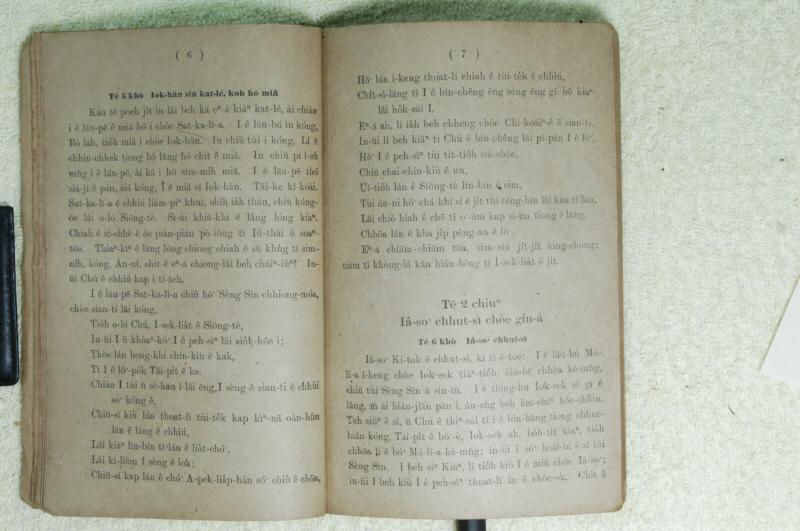 ( 6 )
Tē 5 khò Iok-hān siū kat-lé, koh hō miâ
Káu tē poeh ji̍t in lâi beh kā eⁿ-á kiâⁿ kat-lé, ài chiàu
i ê lāu-pē ê miâ hō i chòe Sat-ka-lī-a. I ê lāu-bú ìn kóng,
Bô lah, tio̍h miâ i chòe Iok-hān. In chiū tùi i kóng, Lí ê
chhin-chhek tiong bô lâng hō chit ê miâ. In chiū pí ì-sù
mn̄g i ê lāu-pē, ài kā i hō sím-mi̍h miâ. I ê lāu-pē thó
siá-jī ê pán, siá kóng, I ê miâ sī Iok-hān. Tāi-ke kî-koài.
Sat-ka-lī-a ê chhùi liám-piⁿ khui, chi̍h iā thán, chiū kóng-
ōe lāi o-ló Siōng-tè. Sì-ûi khiā-khí ê lâng lóng kiaⁿ.
Chiah ê it-chhè ê ōe piàn-piàn pò-iông tī Iû-thài ê soaⁿ-
tóe. Thiaⁿ-kìⁿ ê lâng lóng chiong chiah ê sū khǹg tī sim-
nih, kóng, Án-ni, chit ê eⁿ-á chiong-lâi beh cháiⁿ-iūⁿ? In-
ūi Chú ê chhiú kap i tī-teh.
I ê lāu-pē Sat-ka-lī-a chiū hō͘ Sèng Sîn chhiong-móa,
chòe sian-ti lâi kóng,
Tio̍h o-ló Chú, I-sek-lia̍t ê Siōng-tè,
In-ūi I ū khòaⁿ-kò͘ I ê peh-sìⁿ lâi sio̍k-hôe i;
Thòe lán heng-khí chín-kiù ê kak,
Tī I ê lô͘-po̍k Tāi-pi̍t ê ke.
Chiàu I tùi ū sè-kan í-lâi ēng I sèng ê sian-ti ê chhùi
só͘ kóng ê,
Chiū-sī kiù lán thoat-lī tùi-te̍k kap kìⁿ-nā oàn-hūn
lán ê lâng ê chhiú,
Lâi kiâⁿ lîn-bín tī lán ê lia̍t-chó͘,
Lâi kì-liām I sèng ê iok;
Chiū-sī kap lán ê chó͘ A-pek-lia̍p-hán só͘ chiù ê chōa,
( 7 )
Hō͘ lán í-keng thoat-lī chiah ê tùi-te̍k ê chhiú,
Chi̍t-sì-lâng tī I ê bīn-chêng ēng sèng ēng gī bô kiaⁿ
lâi ho̍k-sāi I.
Eⁿ-á ah, lí iáh beh chheng chòe Chì-koâiⁿ-ê ê sian-ti,
In-ūi lí beh kiâⁿ tī Chú ê bīn-chêng lâi pī-pān I ê lō͘,
Hō͘ I ê peh-sìⁿ tùi tit-tio̍h sià-chōe,
Chiū chai chín-kiù ê un,
Ūi-tio̍h lán ê Siōng-tè lîn-bín ê sim,
Tùi án-ni hō͘ chá-khí sî ê ji̍t tùi téng-bīn lâi kàu tī lán,
Lâi chiò hiah ê chē tī o͘-àm kap sí-ím tiong ê lâng,
Chhōa lán ê kha ji̍p pêng-an ê lō͘.
Eⁿ-á chiām-chiām tōa, sim-sîn ji̍t-ji̍t ióng-chòng;
tiàm tī khòng-iá kàu hián-bêng tī I-sek-lia̍t ê ji̍t.
Tē 2 chiuⁿ
Iâ-so͘ chhut-sì chòe gín-á
Tē 6 khò Iâ-so͘ chhut-sì
Iâ-so͘ Ki-tok ê chhut-sì, kì tī ē-tóe: I ê lāu-bú Má-
lī-a í-keng chòe Iok-sek tiāⁿ-tio̍h, iáu-bē chhōa kè-mn̂g,
chiū tùi Sèng Sîn ū sin-īn. I ê tiōng-hu Iok-sek sī gī ê
lâng, m̄ ài hián-jiān pān i, àn-sǹg beh àm-chīⁿ hòe-chhin.
Teh siūⁿ ê sî, ū Chú ê thiⁿ-sài tī i ê bîn-bāng tiong chhut-
hiān kóng, Tāi-pi̍t ê hō͘-è, Iok-sek ah, bo̍h-tit kiaⁿ, tio̍h
chhōa lí ê bó͘ Má-lī-a kè-mn̂g; in-ūi i só͘ hoâi-īn ê sī tùi
Sèng Sîn. I beh siⁿ Kiáⁿ, lí tio̍h kiò I ê miâ chòe Iâ-so͘;
in-ūi I beh kiù I ê peh-sìⁿ thoat-lī in ê chōe-ok. Chit ê